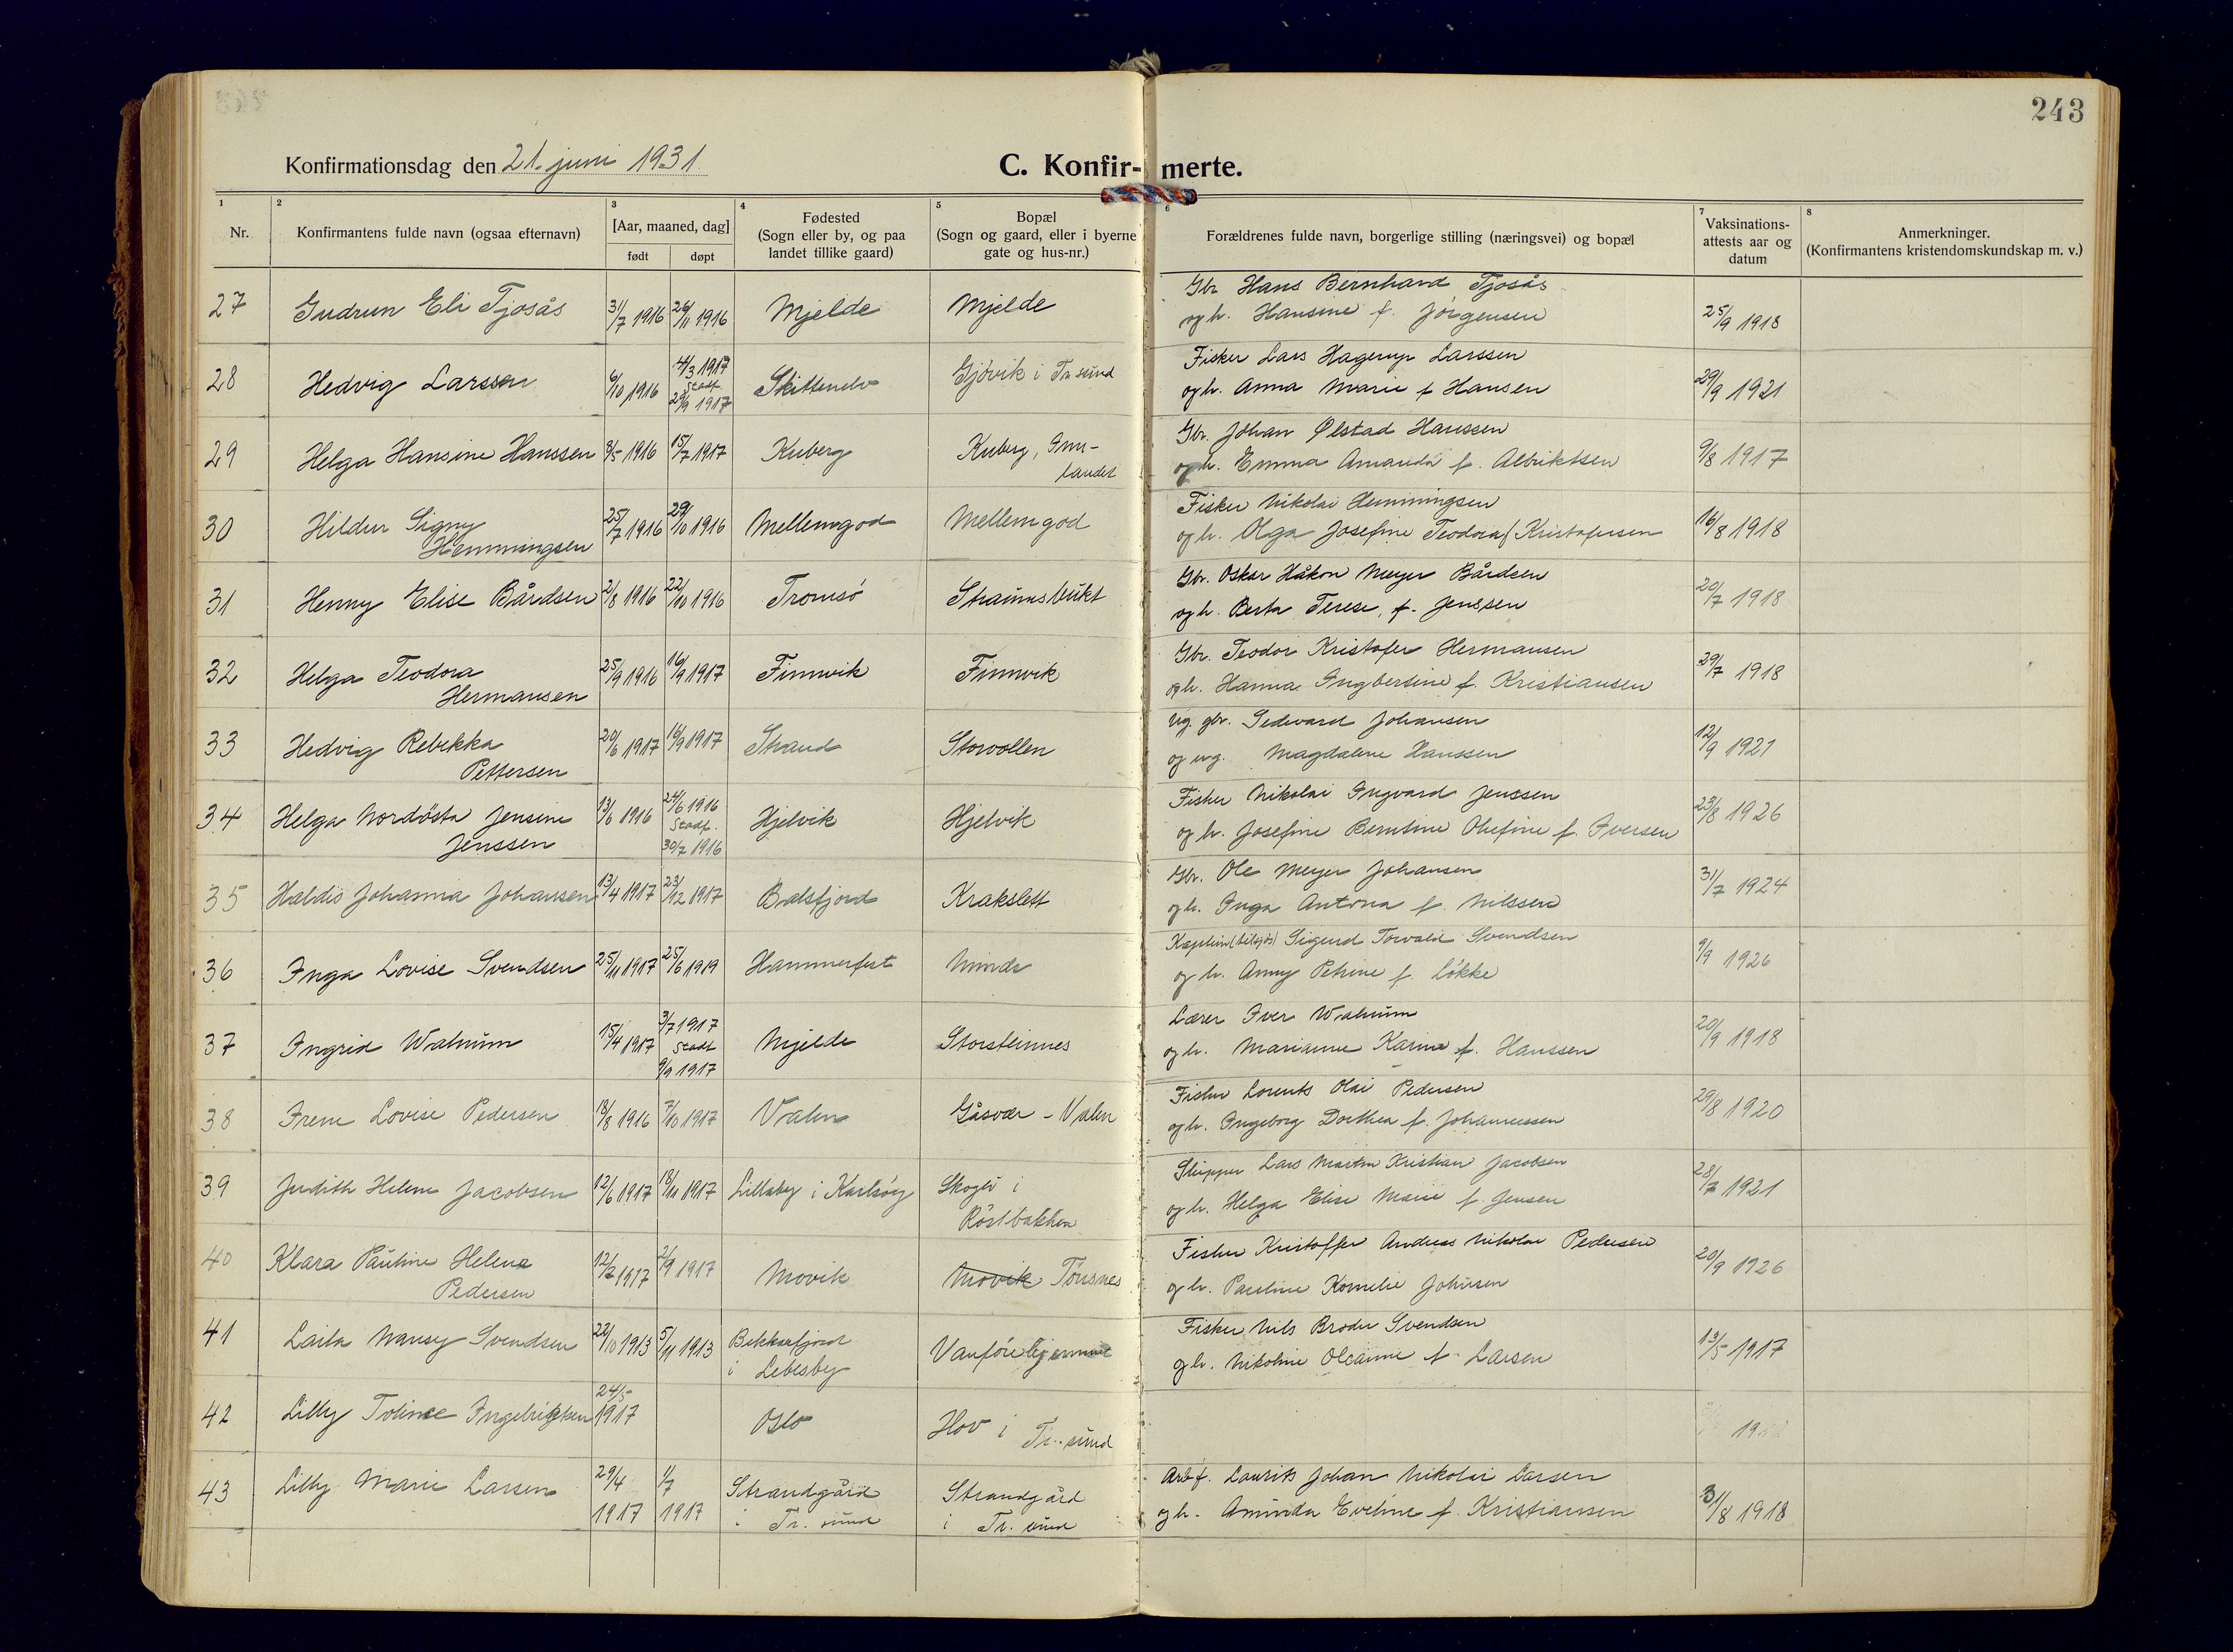 243
Konfirmationsdag den 21. juni 1931
C. Konfir- merte.
1 Nr.
2 Konfirmantens fulde navn (ogsaa efternavn)
3 [Aar, maaned, dag]
født døpt
4 Fødested
(Sogn eller by, og paa
landet tillike gaard)
5 Bopæl
(Sogn og gaard, eller i byerne
gate og hus-nr.)
6 Forældrenes fulde navn, borgerlige stilling (næringsvei) og bopæl
7 Vaksinations-
attests aar og
datum
8 Anmerkninger.
(Konfirmantens kristendomskundskap m. v.)
27 Gudrun Eli Tjosås 31/7 1916 26/11 1916 Mjelde Mjelde
Gbr Hans Bernhard Tjosås
og h. Hansine f. Jörgensen 25/9 1918
28 Hedvig Larssen 6/10 1916 4/3 1917
Stadf.
29/9 1917 Skittenelv Gjövik i Tr. sund
Fisker Lars Hagerup Larssen
og h. Anna Marie f Hansen 29/9 1921
29 Helga Hansine Hanssen 3/5 1916 15/7 1917 Kuberg Kuberg,
landet
Gbr. Johan Ølstad Hanssen
og h. Emma Amanda f. Albriktsen 9/8 1917
30 Hildur Signy
Hemmingsen 25/7 1916 29/10 1916 Mellemgod Mellemgod
Fisker Nikolai Hemmingsen
og h. Olga Josefine Teodora f Kristofersen 16/8 1918
31 Henny Elise Bårdsen 2/8 1916 22/10 1916 Tromsö Straumsbukt
Gbr. Oskar Håkon Meyer Bårdsen
og h. Berta Terese, f. Jenssen 20/7 1918
32 Helga Teodora
Hermansen 25/9 1916 16/9 1917 Finnvik Finnvik
Gbr. Teodor Kristofer Hermansen
og h. Hanna Ingbertine f. Kristiansen 29/7 1918
33 Hedvig Rebekka
Pettersen 20/6 1917 16/9 1917 Strand Storvollen
Ug. gbr. Sedevard Johansen
og ug. Magdalene Hanssen 12/9 1921
34 Helga Nordösta Jensine
Jenssen 13/6 1916 24/6 1916
Stadf.
30/7 1916 Hjelvik Hjelvik
Fisker Nikolai Ingvard Jenssen
og h. Josefine Berntine Olufine f. Iversen 23/8 1926
35 Haldis Johanna Johansen 13/4 1917 23/12 1917 Balsfjord Krakslett
Gbr. Ole Meyer Johansen
og h. Inga Antona f. Nilssen 31/7 1924
36 Inga Lovise Svendsen 25/11 1917 25/6 1919 Hammerfest Minde
Sigurd Torvald Svendsen
og h. Anny Petrine f. Lökke 9/9 1926
37 Ingrid Walnum 15/4 1917 3/7 1917
Stadf
9/9 1917 Mjelde Storsteinnes
Lærer Iver Walnum
og h. Marianne Karine f. Hanssen 20/9 1918
38 Irene Lovise Pedersen 18/8 1916 7/10 1917 Valen Gåsvær - Valen
Fisker Lorents Olai Pedersen
og h. Ingeborg Dorthea f. Johannessen 29/8 1920
39 Judith Helene Jacobsen 12/6 1917 18/11 1917 Lillaby i Karlsöy Skogli i
Röstbakken
Skipper Lars Martin Kristian Jacobsen
og h. Helga Elise Marie f. Jensen 28/7 1921
40 Klara Pauline Helene
Pedersen 12/7 1917 2/9 1917 Movik Movik Tönsnes
Fisker Kristoffer Andreas Nikolai Pedersen
og h. Pauline Kornelie Johnsen 20/9 1926
41 Laila Nancy Svendsen 22/10 1913 5/11 1913 Bekkarfjord
i Lebesby Vanförehjemmet
Fisker Nils Broder Svendsen
og h. Nikoline Oleanne f. Larsen 13/5 1917
42 Lilly Toline Ingebrigtsen 24/5
1917 Oslo Hov i
Tr. sund
43 Lilly Marie Larsen 29/4
1917 1/7
1917 Strandgård
i Tr. sund Strandgård
i Tr. sund
Arb f. Laurits Johan Nikolai Larsen
og h. Aminda Eveline f. Kristiansen 31/8 1918